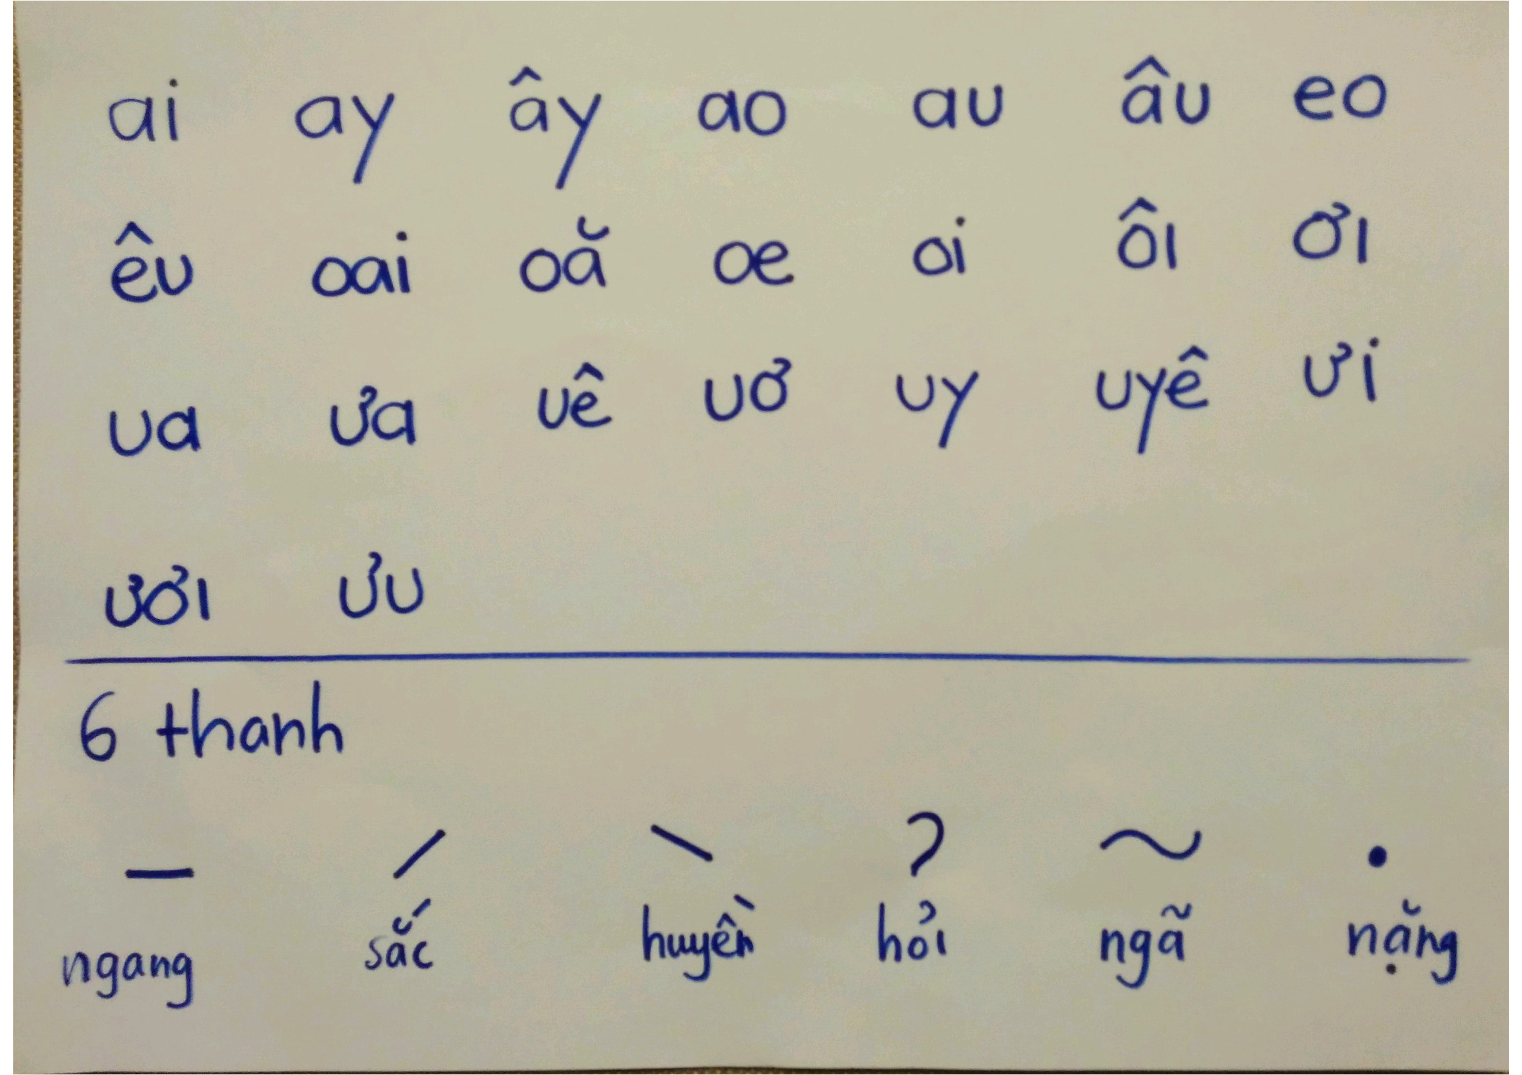 ai ay ây ao au âu eo
êu oai oă oe oi ôi ơi
ua ưa uê uơ uy uyê ưi
ươi ưu
6 thanh
— / \ ? ~ •
ngang sắc huyền hỏi ngã nặng